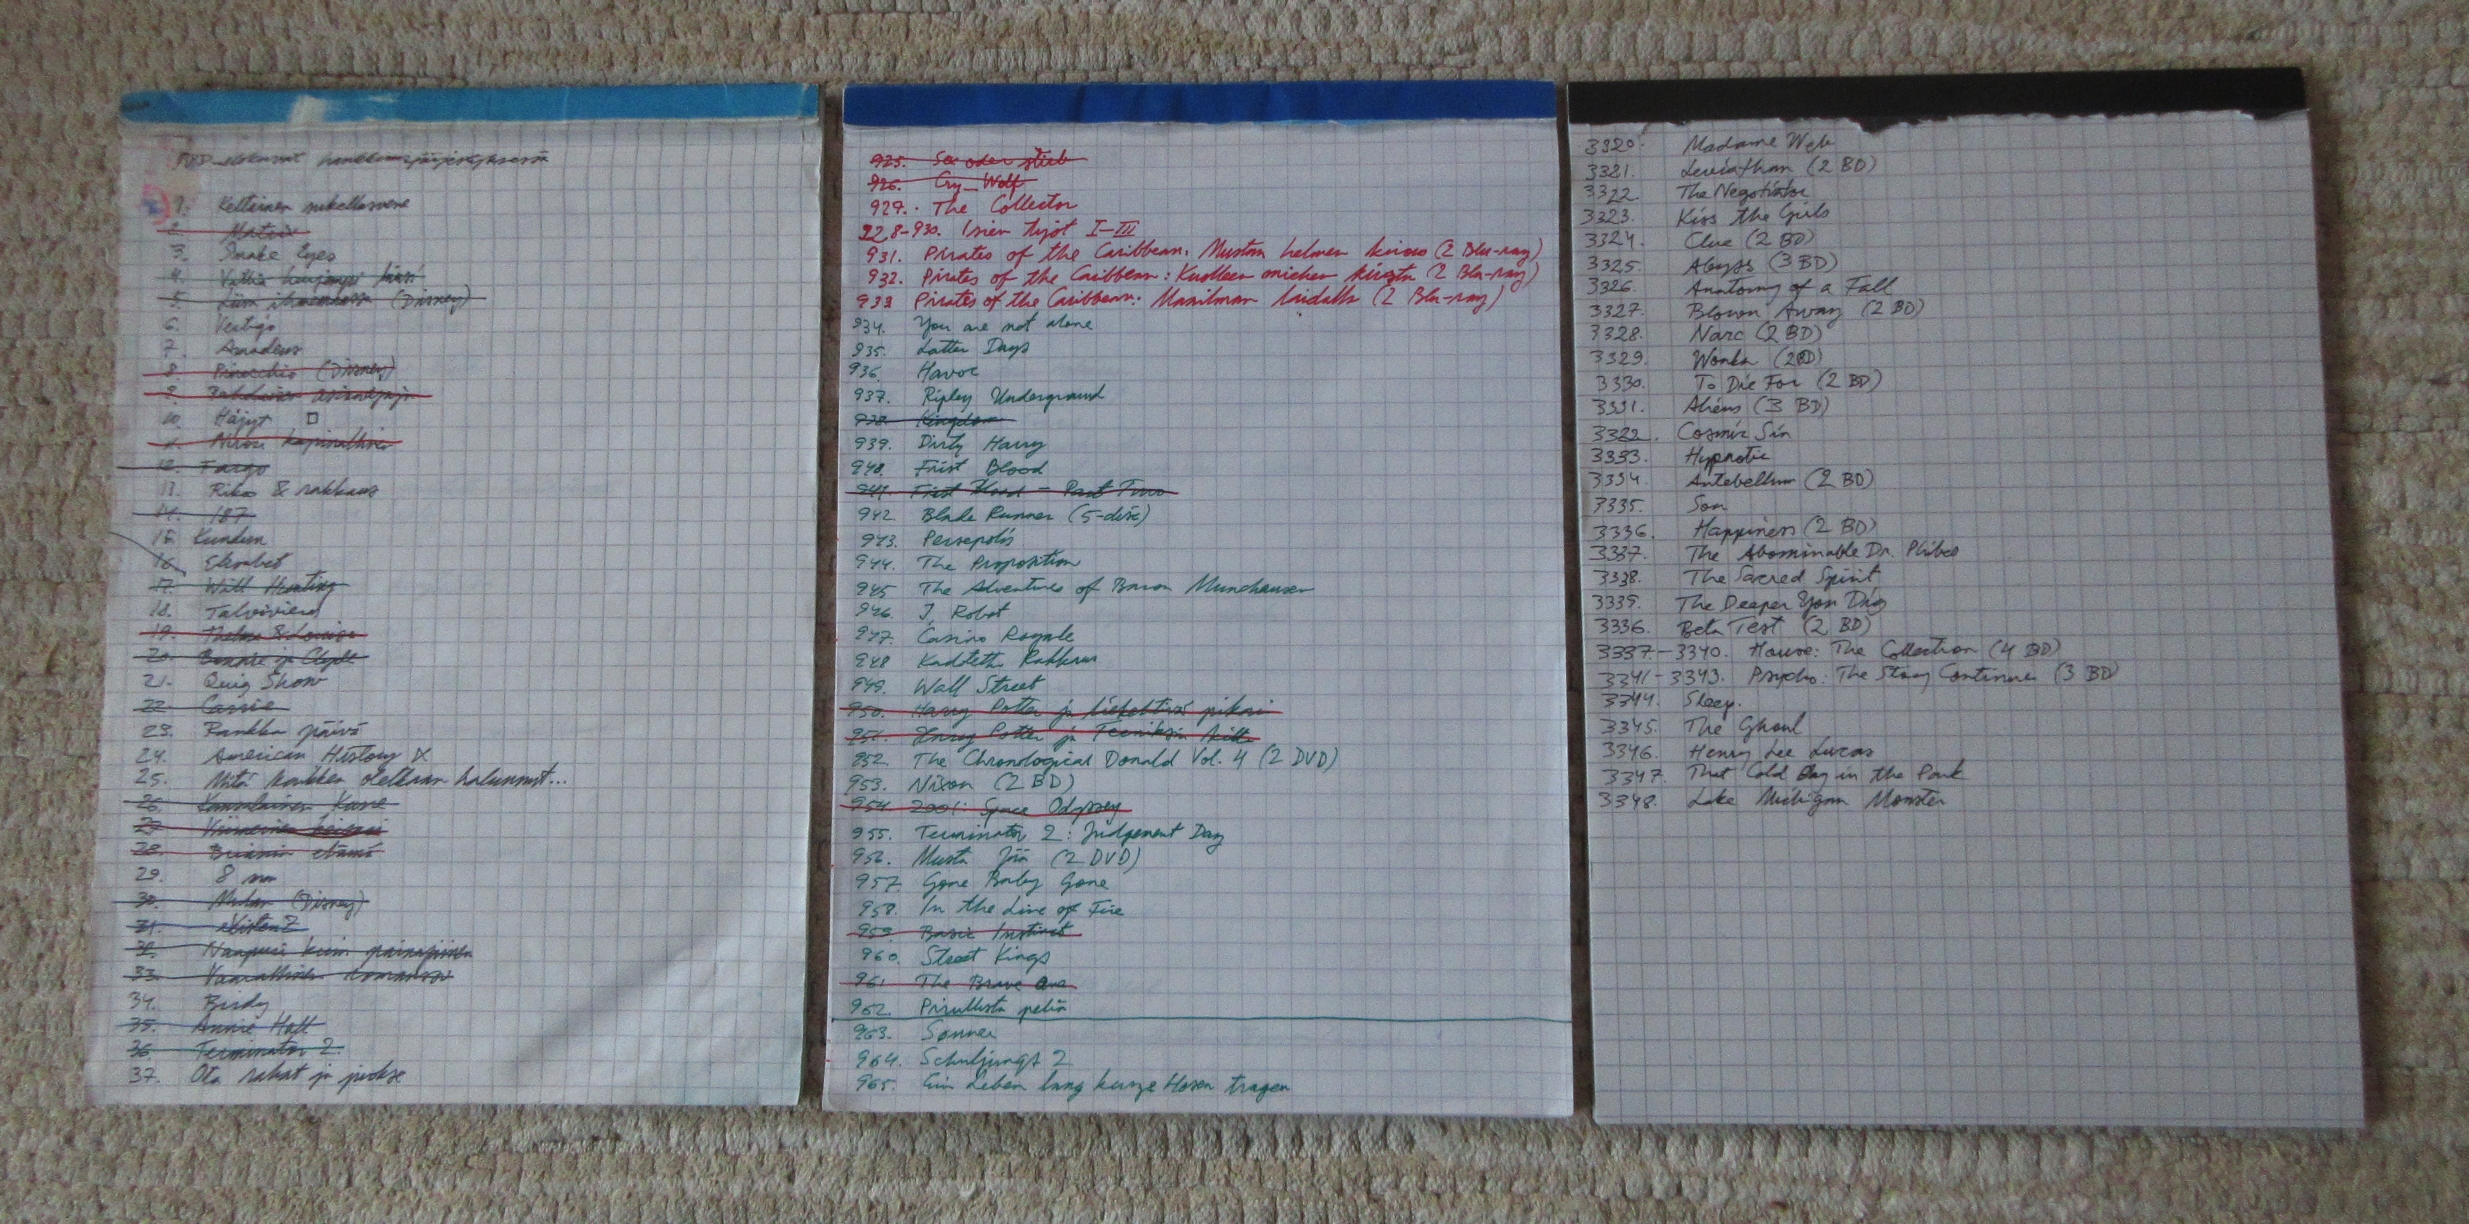 DVD-elokuvat hankkimisjärjestyksessä
1. Keltainen sukellusvene
2. Matrix
3. Snake Eyes
4. Vihta
5. Liisa ihmemaassa (Disney)
6. Vertigo
7. Amadeus
8. Pinocchio (Disney)
9.
10. Häjyt
11. kapinallinen
12. Fargo
13. Rikos & rakkaus
14. 187
15. Kundun
16. Elisabet
17. Will Hunting
18. Talvivieras
19. Thelma & Louise
20. Bonnie ja Clyde
21. Quiz Show
22. Carrie
23. Rankka päivä
24. American History X
25. Mitä kaikkea oletkaan halunnut...
26. Kansalainen Kane
27. Viimeinen keisari
28. Brianin elämä
29. 8 mm
30. Mulan (Disney)
31. eXistenZ
32. Naapuri kuin painajainen
33. Vaarallinen romanssi
34. Birdy
35. Annie Hall
36. Terminator 2
37. Ota rahat ja juokse
925. See oder stirb
926. Cry_Wolf
927. The Collector
928-930. Isien työt I-III
931. Pirates of the Caribbean: Mustan helmen kirous (2 Blu-ray)
932. Pirates of the Caribbean: Kuolleen miehen kirstu (2 Blu-ray)
933 Pirates of the Caribbean: Maailman laidalla (2 Blu-ray)
934. You are not alone
935. Latter Days
936. Havoc
937. Ripley Underground
938. Kingdom
939. Dirty Harry
940. Frist Blood
941. First Blood - Part Two
942. Blade Runner (5-disc)
943. Persepolis
944. The Proposition
945 The Adventures of Baron Munchausen
946. I, Robot
947. Casino Royale
948 Kadotettu Rakkaus
949. Wall Street
950. Harry Potter ja liekehtivä pikari
951. Harry Potter ja Feeniksin kilta
952. The Chronological Donald Vol. 4 (2 DVD)
953. Nixon (2 BD)
954. 2001: Space Odyssey
955. Terminator 2: Judgement Day
956. Musta Jää (2 DVD)
957. Gone Baby Gone
958. In the Line of Fire
959. Basic Instinct
960. Street Kings
961 The Brave One
962. Pirullista peliä
963. Sønner
964. Schuljungs 2
965. Ein Leben lang kurze Hosen tragen
3320. Madame Web
3321. Leviathan (2 BD)
3322. The Negotiator
3323. Kiss the Girls
3324. Clue (2 BD)
3325. Abyss (3 BD)
3326. Anatomy of a Fall
3327. Blown Away (2 BD)
3328. Narc (2 BD)
3329. Wonka (2BD)
3330. To Die For (2 BD)
3331. Aliens (3 BD)
3322. Cosmic Sin
3333. Hypnotic
3334 Antebellum (2 BD)
3335. Son
3336. Happiness (2 BD)
3337. The Abominable Dr. Phibes
3338. The Sacred Spirit
3339. The Deeper You Dig
3336. Beta Test (2 BD)
3337-3340. House: The Collection (4 BD)
3341-3343. Psycho: The Story Continues (3 BD)
3344. Sleep.
3345. The Ghoul
3346. Henry Lee Lucas
3347. That Cold Day in the Park
3348. Lake Michigan Monster